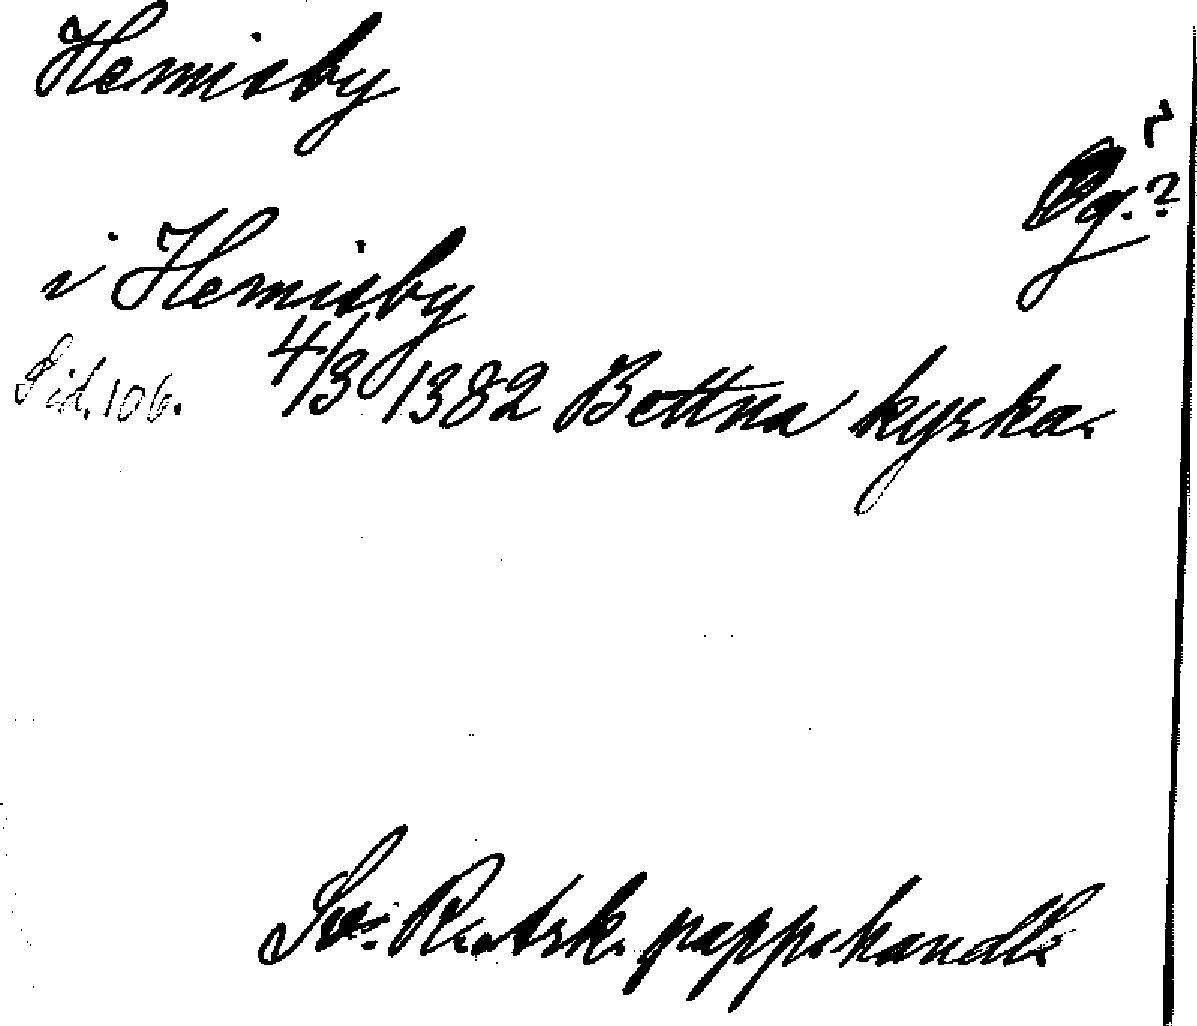 Hemisby
Ög.?
?
i Hemisby
Sid. 106. 4/3 1382 Bettna kyrka.
Sv. R. Ark. pappshandl.